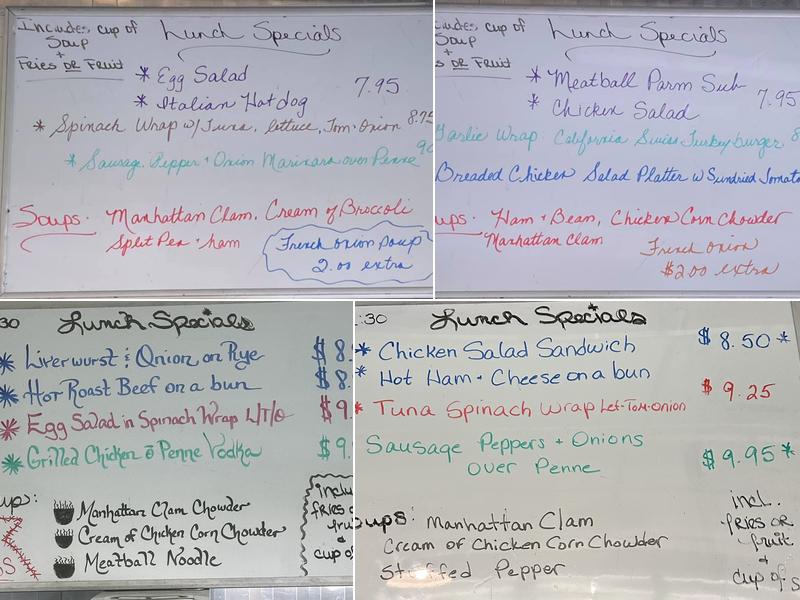 Includes cup of
Soup
+
Fries OR Fruit
Lunch Specials
* Egg Salad
* Italian Hotdog
7.95
* Spinach Wrap w/Tuna, lettuce, Tom. Onion 8.75
* Sausage, Pepper + Onion Marinara over Penne
Soups. Manhattan Clam, Cream of Broccoli
Split Pea + ham
French onion soup
2.00 extra
cup of
Soup
+
OR Fruit
Lunch Specials
* Meatball Parm Sub
* Chicken Salad
7.95
Garlic Wrap: California Swiss Turkey burger 8
Breaded Chicken Salad Platter w Sundried Tomato
ups: Ham + Bean, Chicken Corn Chowder
Manhattan Clam
French Onion
$2.00 extra
30 Lunch Specials
* Liverwurst & Onion on Rye $8.
* Hot Roast Beef on a bun $8.
* Egg Salad in Spinach Wrap L/T/O $9
* Grilled Chicken c̄ Penne Vodka $9.
up:
Manhattan Clam Chowder
Cream of Chicken Corn Chowder
Meatball Noodle
inclu
fries o
fru
&
cup of
:30 Lunch Specials
* Chicken Salad Sandwich $8.50 *
* Hot Ham + Cheese on a bun
* Tuna Spinach Wrap Let-Tom-Onion $9.25
Sausage Peppers + Onions
over Penne $9.95 *
oups: Manhattan Clam
Cream of Chicken Corn Chowder
Stuffed Pepper
incl.
fries OR
fruit
&
cup of s